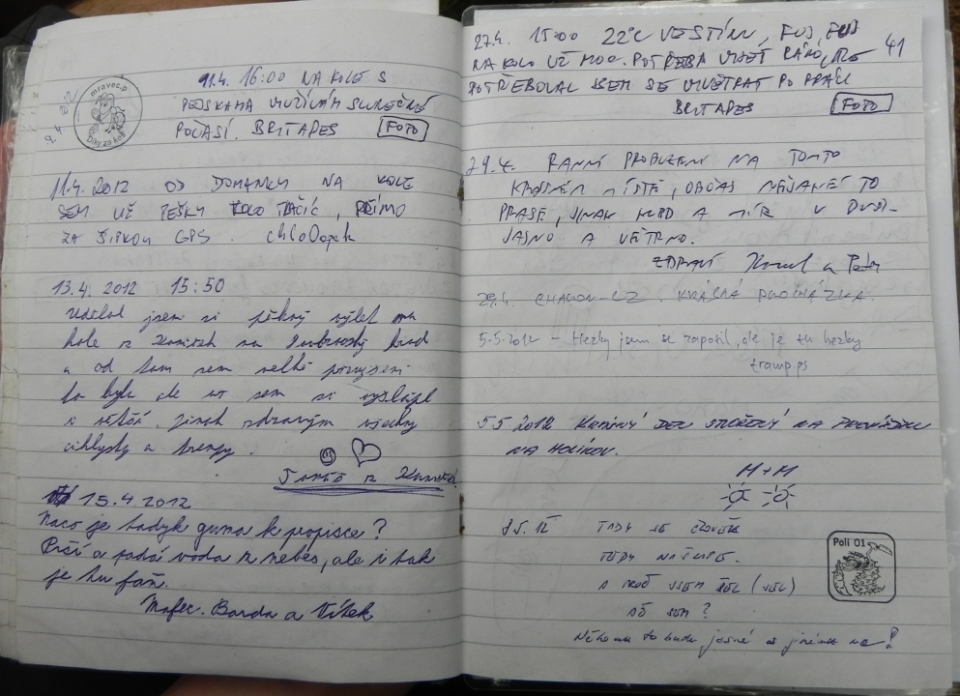 mravec.p
Díky za keš
9.4. 2012
9.4. 16:00 NA KOLE S
PEJSKAMA UŽIL SLUNEČNÉ
POČASÍ. BRITAPES FOTO
11.4. 2012 OD DOMANKY NA KOLE
SEM UŽ TEŠKY KOLO TLAČIC, PŘÍMO
ZA ŠIPKOU GPS. chlOOpek
13.4. 2012 15:50
Udělal jsem si pěkný výlet na
kole z na brod
a od tam sem velké
to byla ale už sem si vyšlápl
i větší. Jinak zdravím všechny
ciklysty a trempy.
Tomáš z
15.4 2012
Naco je tadyk guma k propisce?
Prší a padá voda z nebes, ale i tak
je tu fajn.
Mafec. Barda a Vítek
41
27.4. 15:00 22°C VE STÍNU, FUJ, FUJ
NA KOLO UŽ MOC. POTŘEBA VYJET RÁNO, ALE
POTŘEBOVAL JSEM SE VYVĚTRAT PO PRÁCI
BRITAPES FOTO
29.4. RANNÍ PROBUZENÍ NA TOMTO
KRÁSNÉM MÍSTĚ, OBČAS NĚJANÉ TO
PRASE, JINAK KLID A MÍR V DUŠI.
JASNO A VĚTRNO.
ZDRAVÍ a Petr
29.4. CHARON-CZ. KRÁSNÁ PROCHÁZKA.
5.5.2012 - Hezky jsem se zapotil, ale je tu hezky
tramp.ps
5.5 2012 KRÁSNÝ DEN STRÁVENÝ NA
NA
M+M
8.5. 12 TADY SE ČLOVĚK
TEDY NAŠLAPE.
A PROČ JSEM ŠEL (JEL)
AŽ SEM?
Někomu to bude jasné a jinému ne!
Poli 01